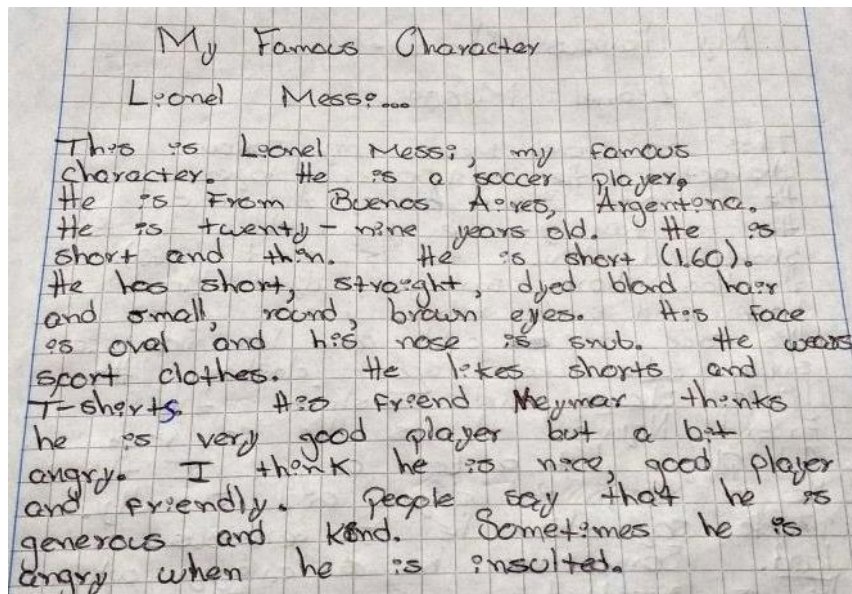 My Famous Character
Lionel Messi...
This is Lionel Messi, my famous
character. He is a soccer player.
He is From Buenos Aires, Argentina.
He is twenty-nine years old. He is
short and thin. He is short (1.60).
He has short, straight, dyed blond hair
and small, round, brown eyes. His face
is oval and his nose is snub. He wears
sport clothes. He likes shorts and
T-shirts. His friend Neymar thinks
he is very good player but a bit
angry. I think he is nice, good player
and friendly. People say that he is
generous and kind. Sometimes he is
angry when he is insulted.